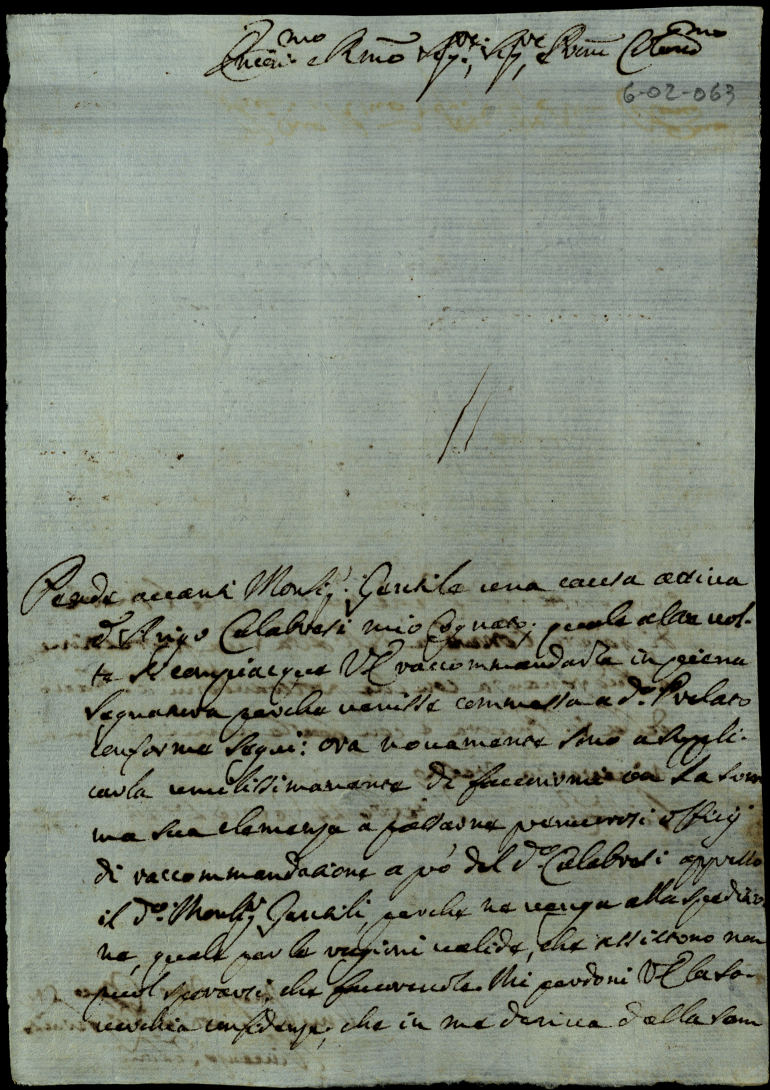 e Rmo Sig.re, Sig.re e Pron Col.mo
6-02-063
Pende avanti Monsig.r Gentile una causa attiva
d'Arigo Calabresi mio Cognato; quale altre vol-
te si compiacque VE raccommandarla in piena
Segnatura perche venisse commessa a d.o Prelato
conforme seguì: ora novamente sono a suppli-
carla umilissimamente di favorirmi con la som
ma sua clemenza a passarne premurosi officij
di raccommandazione a pò del d.o Calabresi appresso
il d.o Monsig.r Gentili, perche ne venga alla spedizio
ne, quale per le ragioni valide, che assistono non
puol sperarsi, che favorevole. Mi perdoni VE la so-
verchia confidenza, che in me deriva dalla som